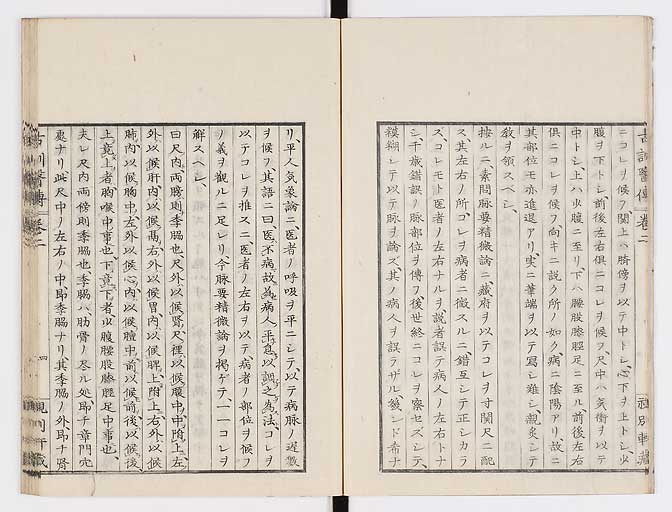 ニコレヲ候フ關上ハ臍傍ヲ以テ中トシ心下ヲ上トシ少
腹ヲ下トシ前後左右俱ニコレヲ候フ尺中ハ氣衝ヲ以テ
中トシ上ハ少腹ニ至リ下ハ腰股膝脛足ニ至ル前後左右
俱ニコレヲ候フ尚キニ說ク所ノ如ク病ニ陰陽アリ故ニ
其部位モ亦進退アリ實ニ筆端ヲ以テ寫シ難シ親炙シテ
敎ヲ領スベシ
按ルニ素問脉要精微論ニ藏府ヲ以テコレヲ寸關尺ニ配
ス其左右ノ所コレヲ病者ニ徵スルニ錯互シテ正シカラ
ズコレモト医者ノ左右ナルヲ說者誤テ病人ノ左右トナ
シ千歲錯誤ノ脉部位ヲ傳フ後世終ニコレヲ察セズシテ
模糊シテ以テ脉ヲ論ズ其ノ病人ヲ誤ラザル幾ンド希ナ
リ平人氣象論ニ医者ノ呼吸ヲ平ニシテ以テ病脉ノ遲數
ヲ候フ其語ニ曰医不病故為病人平息以調之為法コレヲ
以テコレヲ推スニ医者ノ左右ヲ以テ病者ノ部位ヲ候フ
ノ義ヲ觀ルニ足レリ今脉要精微論ヲ揭ゲテ一一コレヲ
解スベシ
曰尺內兩傍則季脇也尺外以候腎尺裡以候腹中附上左
外以候肝內以候鬲右外以候胃內以候脾上附上右外以候
肺內以候胸中左外以候心內以候膻中前以候前後以候後
上竟上者胸喉中事也下竟下者少腹腰股膝脛足中事也
夫レ尺內兩傍則季脇也季脇ハ肋骨ノ盡ル処即チ章門穴
處ナリ此尺中ノ左右ノ中即季脇ナリ其季脇ノ外即チ腎
古訓醫傳 卷二
四